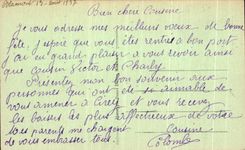 Bien chère Cousine
Je vous adresse mes meilleurs voeux de bonne
fête, j'espère que vous êtes rentrés à bon port
j'ai eu grand plaisir à vous revoir ainsi
que Cousin Victor et Charly
Présentez mon bon souvenir aux
personnes qui ont été si aimable de
vous amener à Cirey et vous recevez
les baisers les plus affectueux de votre
Cousine
mes parents me chargent
de vous embrasser tous.
Colombe